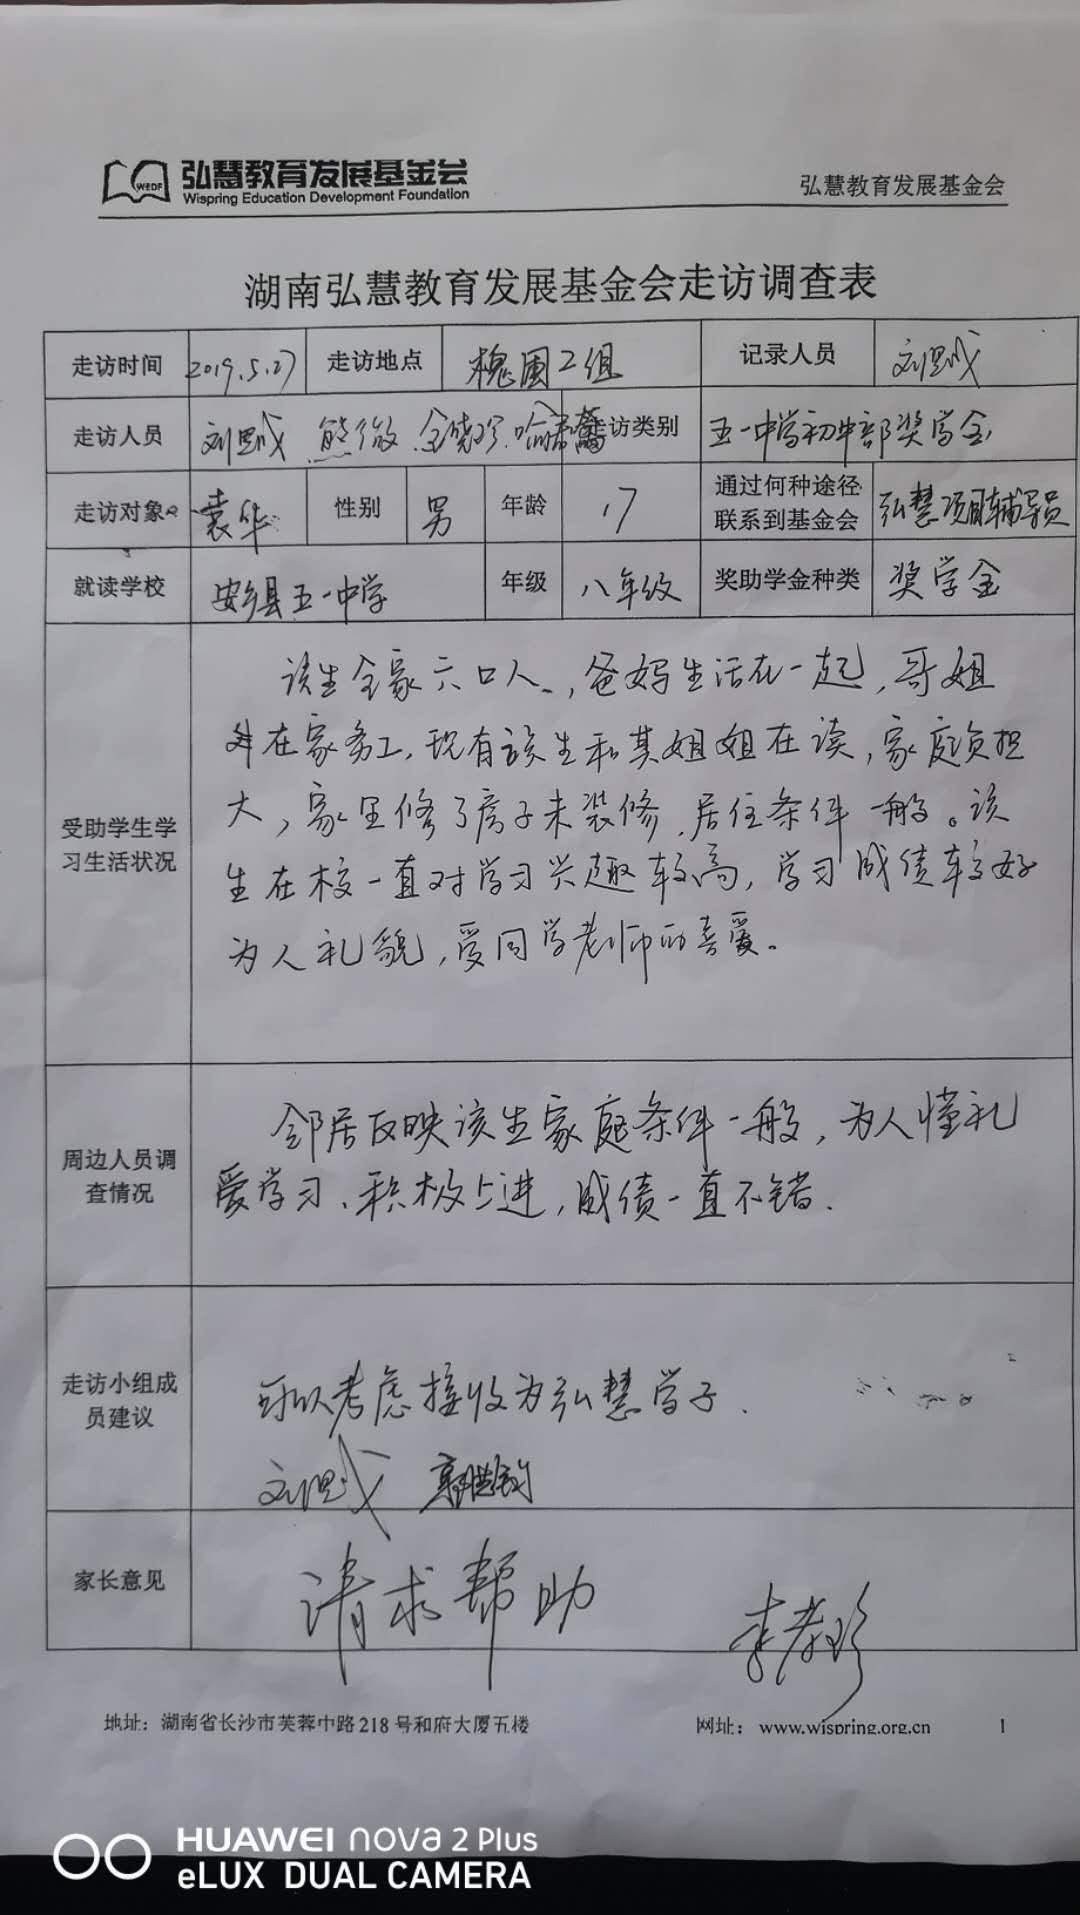 WEDF 弘慧教育发展基金会
Wispring Education Development Foundation
弘慧教育发展基金会
湖南弘慧教育发展基金会走访调查表
走访时间 2019.5.27 走访地点 槐围工组 记录人员 刘思成
走访人员 刘思成 熊微 走访类别 五一中学初中部奖学金
走访对象 袁华 性别 男 年龄 17 通过何种途径联系到基金会 弘慧项目辅导员
就读学校 安乡县五一中学 年级 八年级 奖助学金种类 奖学金
受助学生学习生活状况
该生全家六口人,爸妈生活在一起,哥姐
在家务工,现有该生和其姐姐在读,家庭负担
大,家里修了房子未装修,居住条件一般。该
生在校一直对学习兴趣较高,学习成绩较好
为人礼貌,受同学老师的喜爱。
周边人员调查情况
邻居反映该生家庭条件一般,为人懂礼
爱学习、积极上进,成绩一直不错.
走访小组成员建议
可以考虑接收为弘慧学子.
刘思成
家长意见
请求帮助
李孝珍
地址:湖南省长沙市芙蓉中路218号和府大厦五楼 网址:www.wispring.org.cn 1
HUAWEI nova 2 Plus
eLUX DUAL CAMERA